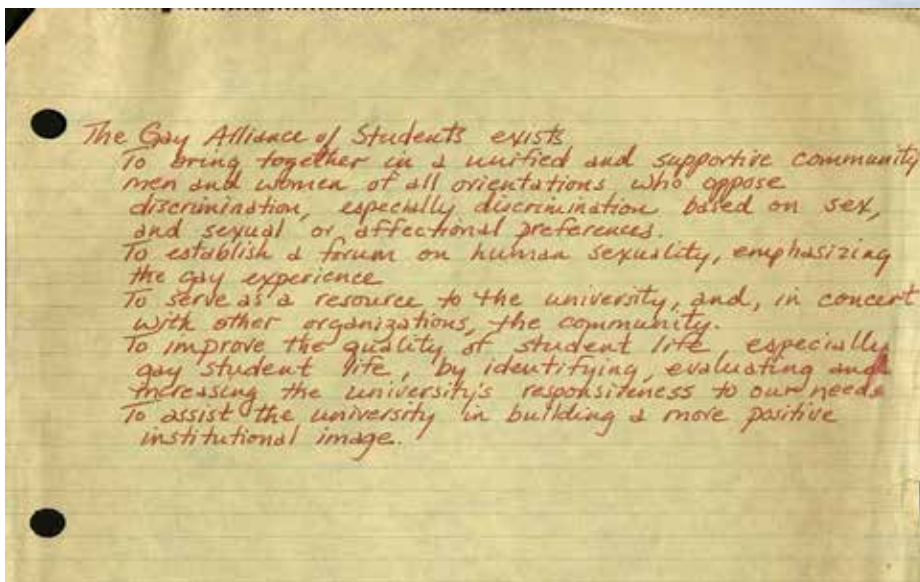 The Gay Alliance of Students exists
To bring together in a unified and supportive community
men and women of all orientations, who oppose
discrimination, especially discrimination based on sex,
and sexual or affectional preferences.
To establish a forum on human sexuality, emphasizing
the gay experience
To serve as a resource to the university, and, in concert
with other organizations, the community.
To improve the quality of student life especially
gay student life, by identifying, evaluating and
increasing the university's responsiteness to our needs
To assist the university in building a more positive
institutional image.